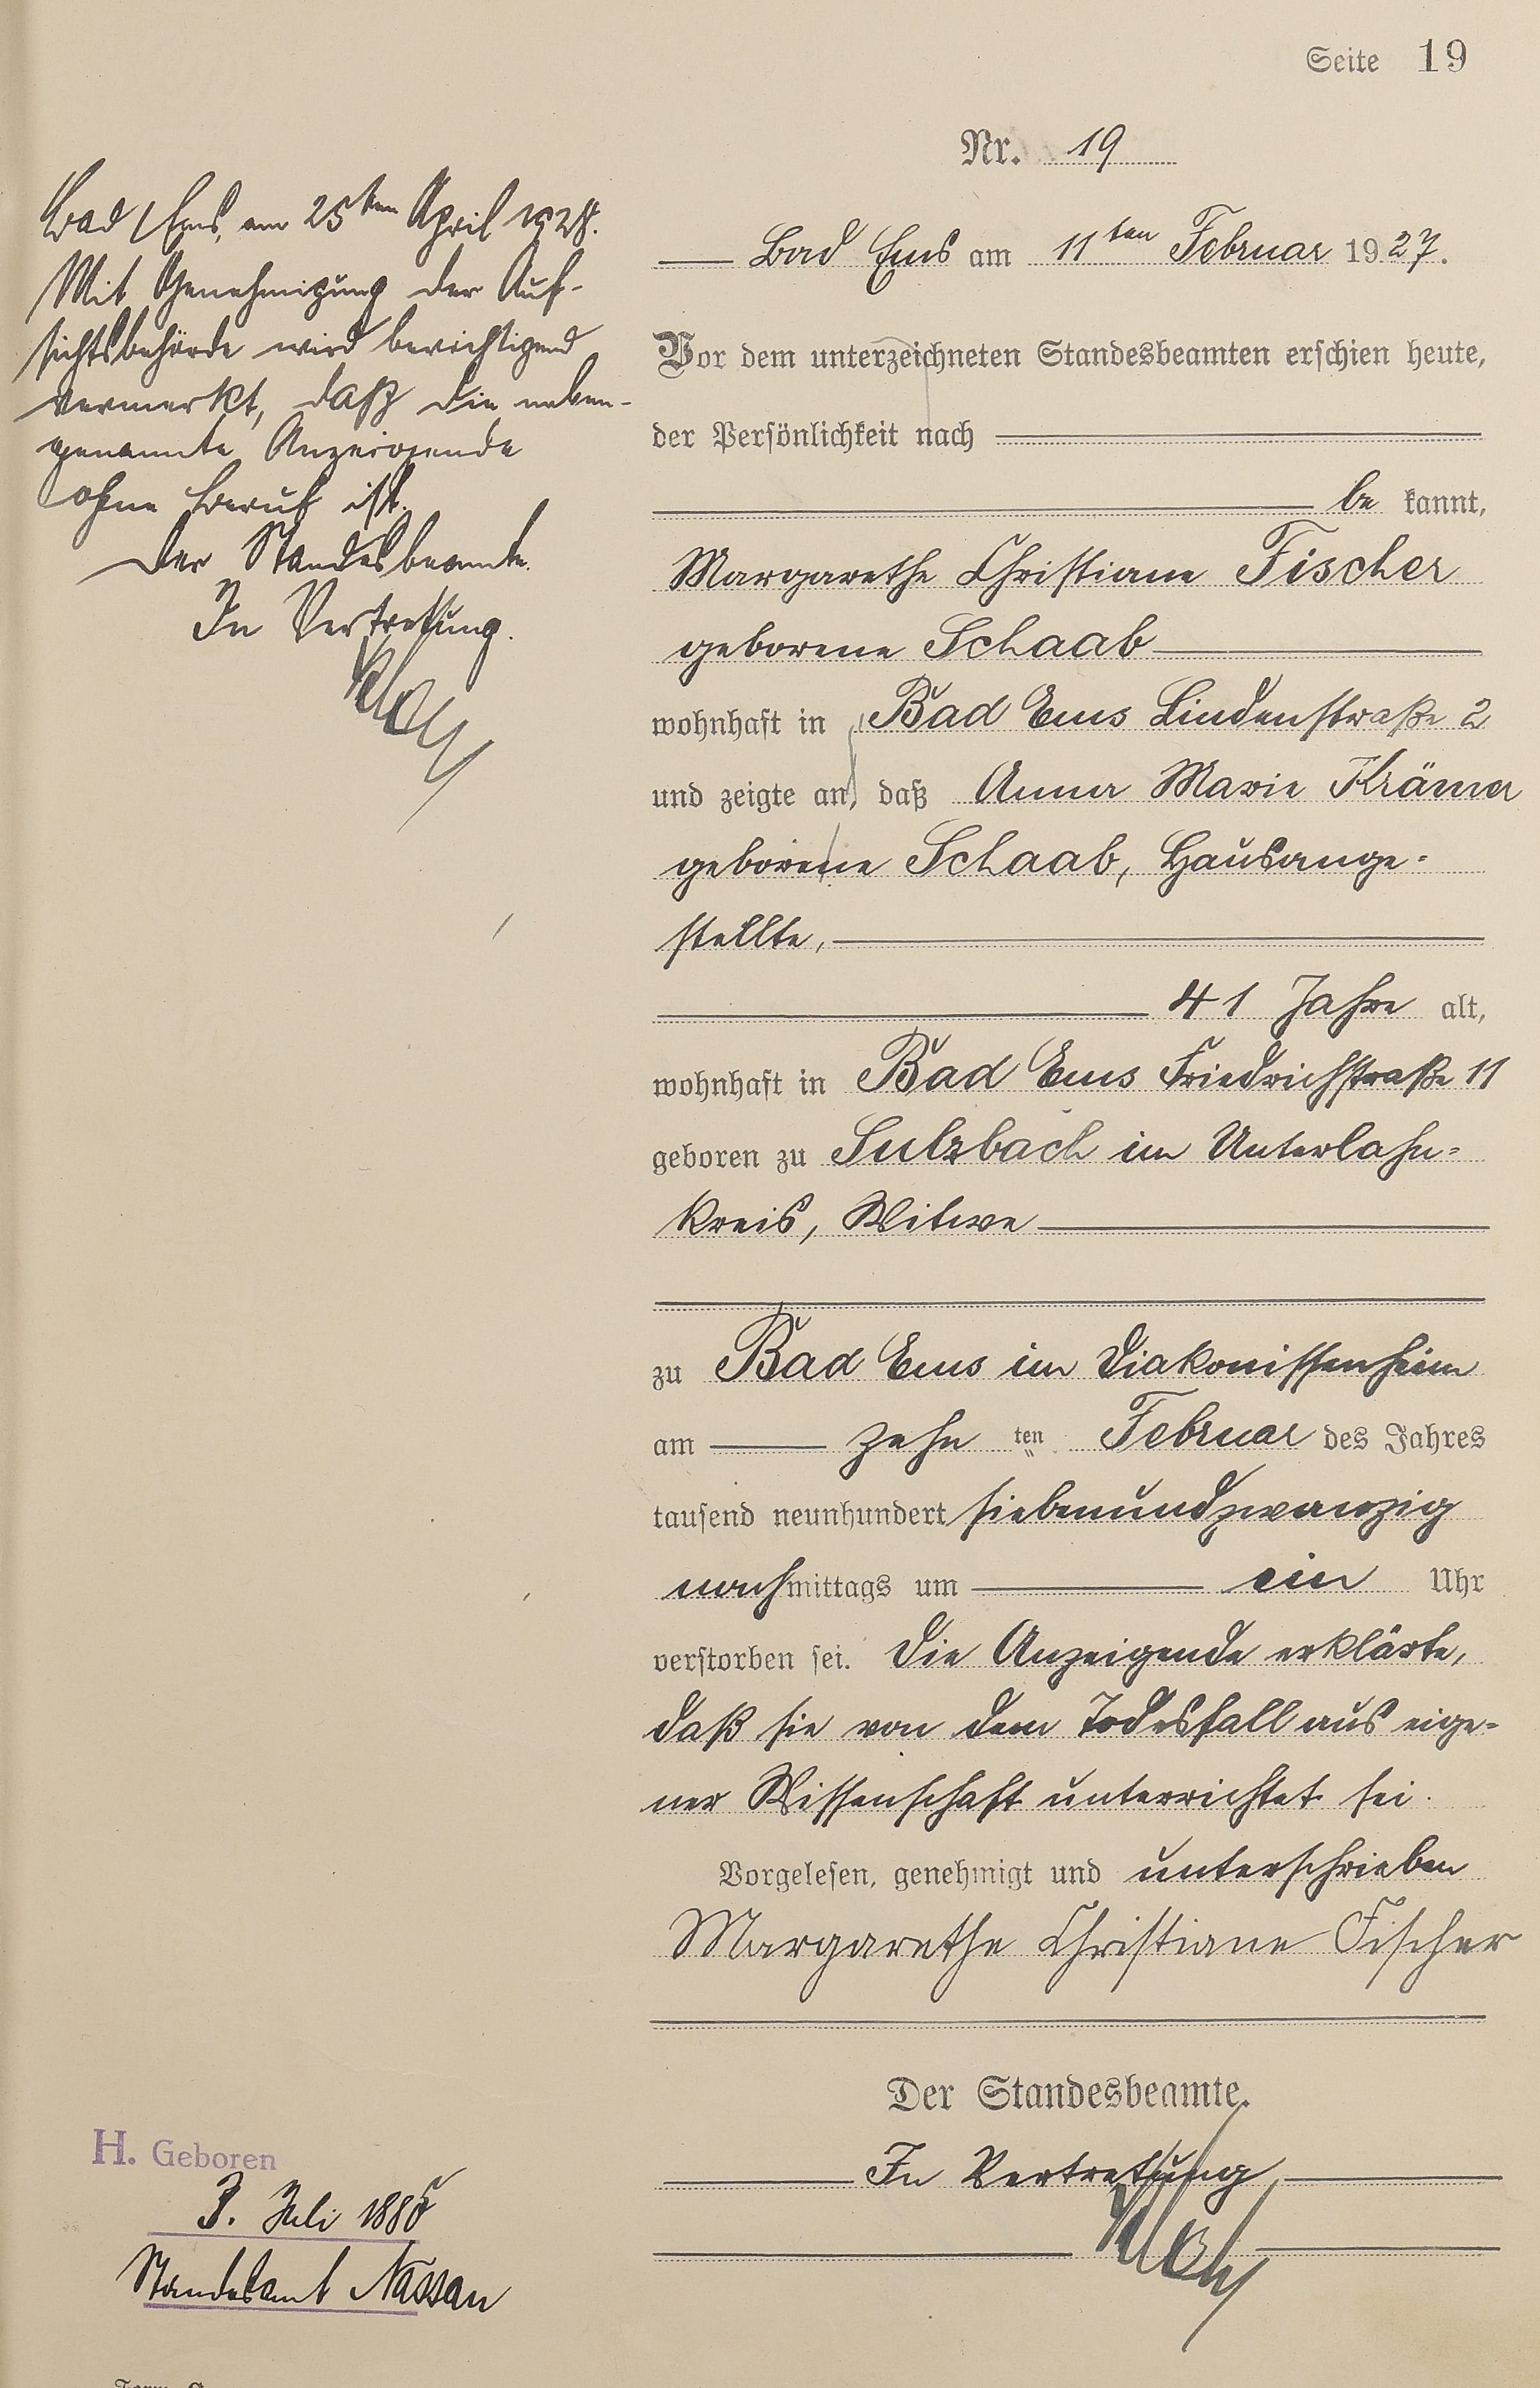 Seite 19
Nr. 19
Bad Ems am 11ten Februar 1927.
Vor dem unterzeichneten Standesbeamten erschien heute,
der Persönlichkeit nach
bekannt,
Margarethe Christiane Fischer
geborene Schaab
wohnhaft in Bad Ems Lindenstraße 2
und zeigte an, daß Anna Marie Krämer
geborene Schaab, Hausange-
stellte,
41 Jahre alt,
wohnhaft in Bad Ems Friedrichstraße 11
geboren zu Sulzbach im Unterlahn-
kreis, Witwe
zu Bad Ems im Diakonissenheim
am zehn ten Februar des Jahres
tausend neunhundert siebenundzwanzig
nachmittags um ein Uhr
verstorben sei. Die Anzeigende erklärte,
daß sie von dem Todesfall aus eige-
ner Wissenschaft unterrichtet sei.
Vorgelesen, genehmigt und unterschrieben
Margarethe Christiane Fischer
Der Standesbeamte.
In Vertretung
Bad Ems, am 25ten April 1928.
Mit Genehmigung der Auf-
sichtsbehörde wird berichtigend
vermerkt, daß die neben-
genannte Anzeigende
ohne Beruf ist.
Der Standesbeamte.
In Vertretung.
H. Geboren
3. Juli 1885
Standesamt Nassau